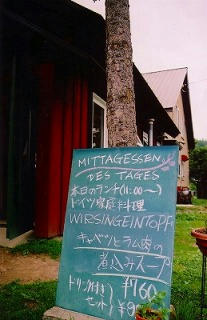 MITTAGESSEN
DES TAGES
本日のランチ(11:00〜)
ドイツ家庭料理
WIRSINGEINTOPF
キャベツとラム肉の
煮込みスープ
¥760
ドリンク付き
セット ¥9